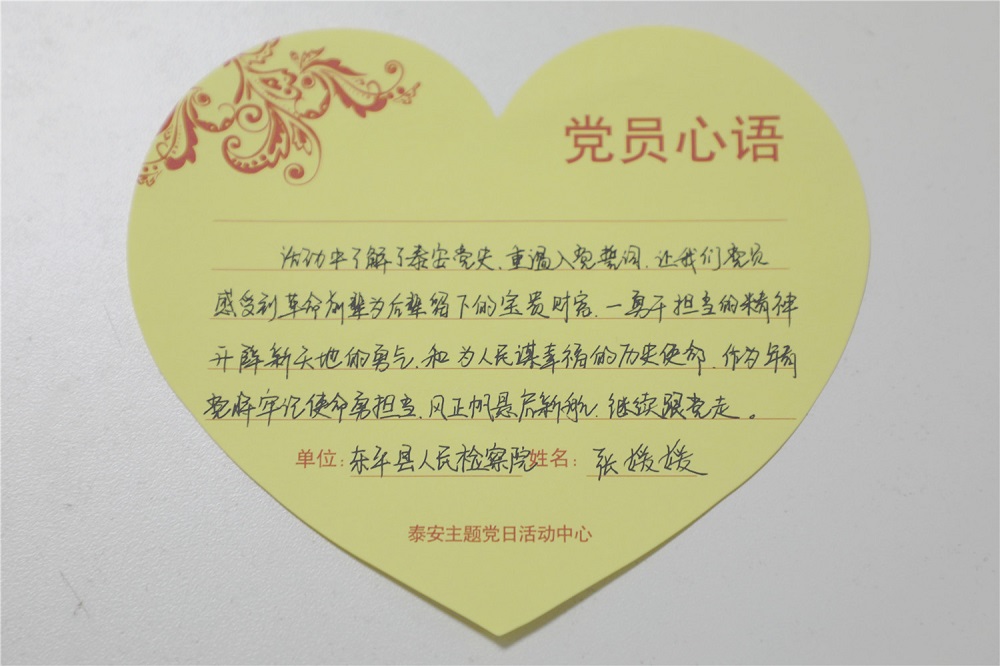 党员心语
活动中了解了泰安党史,重温入党誓词,让我们党员
感受到革命前辈为后辈留下的宝贵财富,一勇于担当的精神
开辟新天地的勇气,和为人民谋幸福的历史使命,作为年轻
党将牢记使命勇担当,风正帆悬启新航,继续跟党走。
单位:东平县人民检察院 姓名:张媛媛
泰安主题党日活动中心